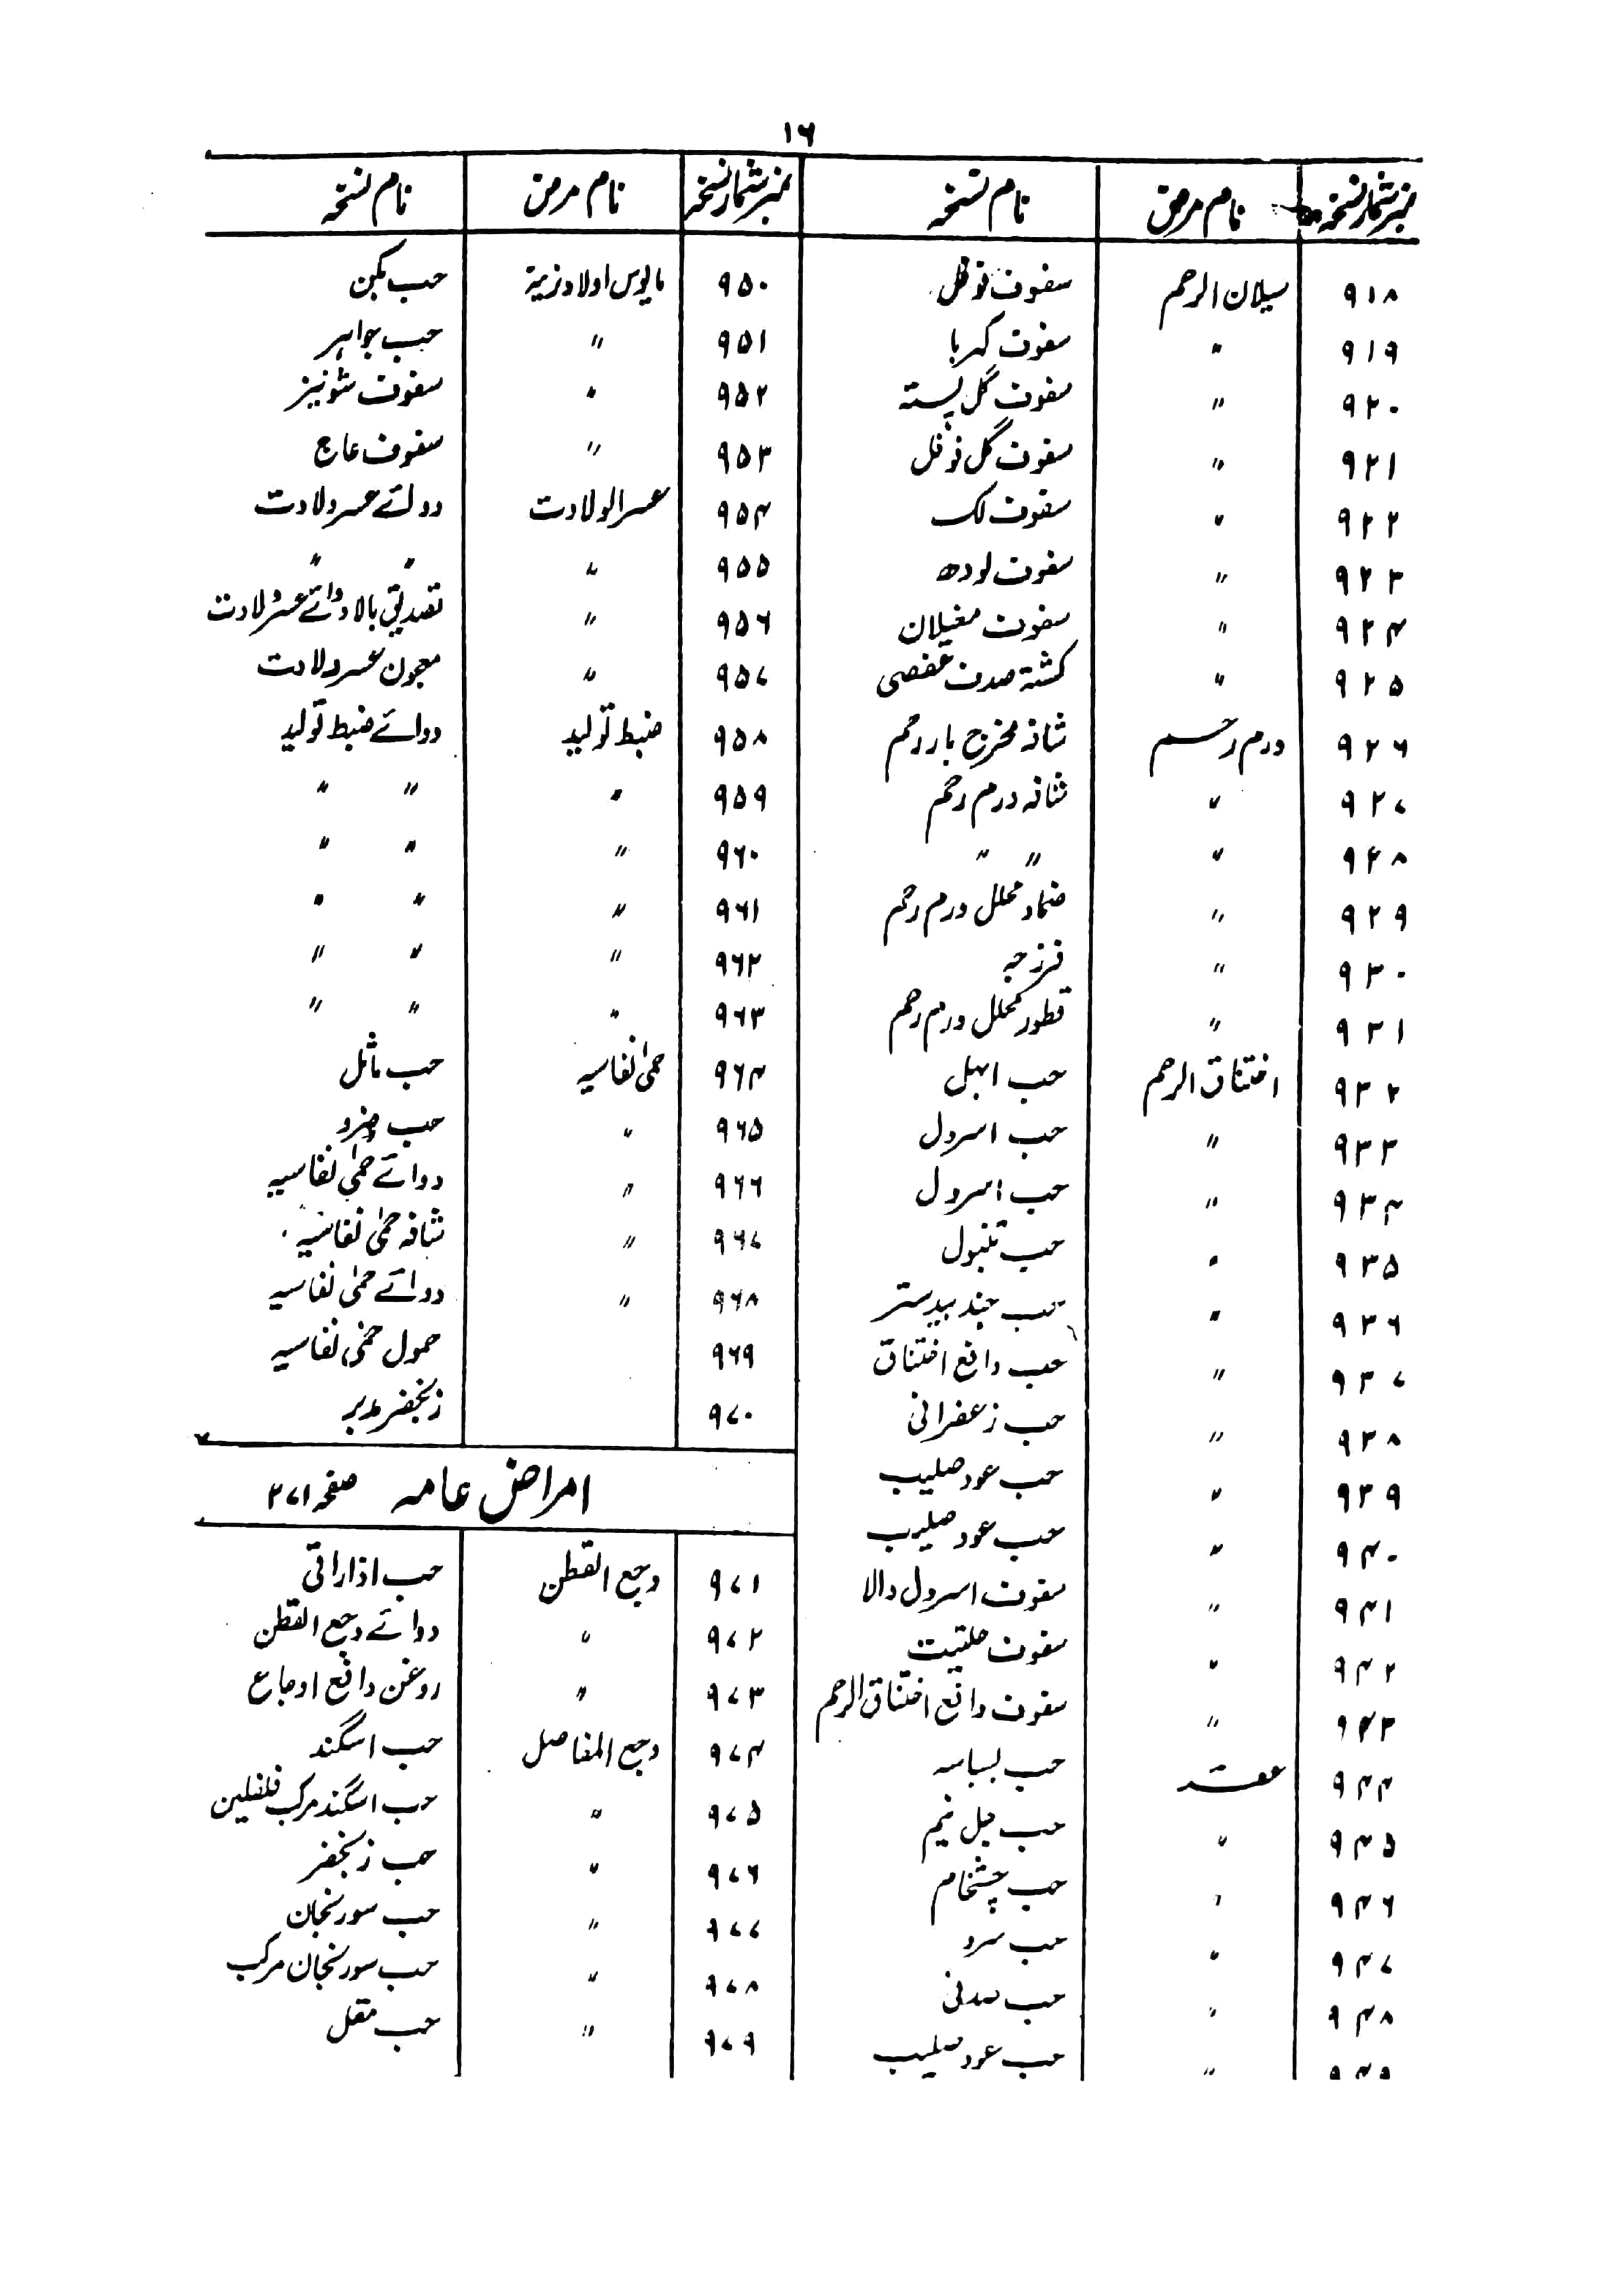 ۱۶
نمبر شمار نسخہ نام مرض نام نسخہ
۹۱۸ سیلان الرحم سفوف فوفل
۹۱۹ " سفوف کہربا
۹۲۰ " سفوف گل پستہ
۹۲۱ " سفوف گل فوفل
۹۲۲ " سفوف لک
۹۲۳ " سفوف لودھ
۹۲۴ " سفوف مغیلان
۹۲۵ " کشتہ صدف عفصی
۹۲۶ ورم رحم شافہ مخرج بار رحم
۹۲۷ " شافہ ورم رحم
۹۲۸ " " "
۹۲۹ " ضماد محلل ورم رحم
۹۳۰ " فرزجہ
۹۳۱ " قطور محلل ورم رحم
۹۳۲ اختناق الرحم حب ابہل
۹۳۳ " حب اسرول
۹۳۴ " حب اسرول
۹۳۵ " حب تنبول
۹۳۶ " حب جند بیدستر
۹۳۷ " حب دافع اختناق
۹۳۸ " حب زعفرانی
۹۳۹ " حب عود صلیب
۹۴۰ " حب عود صلیب
۹۴۱ " سفوف اسرول والا
۹۴۲ " سفوف حلتیت
۹۴۳ " سفوف دافع اختناق الرحم
۹۴۴ عقر حب بسباسہ
۹۴۵ " حب جل نیم
۹۴۶ " حب چشخام
۹۴۷ " حب سرو
۹۴۸ " حب صدفی
۹۴۹ " حب عود صلیب
نمبر شمار نسخہ نام مرض نام نسخہ
۹۵۰ مایوس اولاد نرینہ حب بکن
۹۵۱ " حب جواہر
۹۵۲ " سفوف شونیز
۹۵۳ " سفوف عاج
۹۵۴ عسر الولادت دوائے عسر ولادت
۹۵۵ " " "
۹۵۶ " تصدیق بالا دوائے عسر ولادت
۹۵۷ " معجون عسر ولادت
۹۵۸ ضبط تولید دوائے ضبط تولید
۹۵۹ " " "
۹۶۰ " " "
۹۶۱ " " "
۹۶۲ " " "
۹۶۳ " " "
۹۶۴ حمیٰ نفاسیہ حب ماثل
۹۶۵ " حب
۹۶۶ " دوائے حمیٰ نفاسیہ
۹۶۷ " شافہ حمیٰ نفاسیہ
۹۶۸ " دوائے حمیٰ نفاسیہ
۹۶۹ حمول حمیٰ نفاسیہ
۹۷۰ زنجفر مدبر
امراض عامہ صفحہ ۲۷۱
۹۷۱ وجع القطن حب اذاراقی
۹۷۲ " دوائے وجع القطن
۹۷۳ " روغن دافع اوجاع
۹۷۴ وجع المفاصل حب اسگند
۹۷۵ " حب اسگند مرکب فلفلین
۹۷۶ " حب زنجفر
۹۷۷ " حب سورنجان
۹۷۸ " حب سورنجان مرکب
۹۷۹ " حب مقل